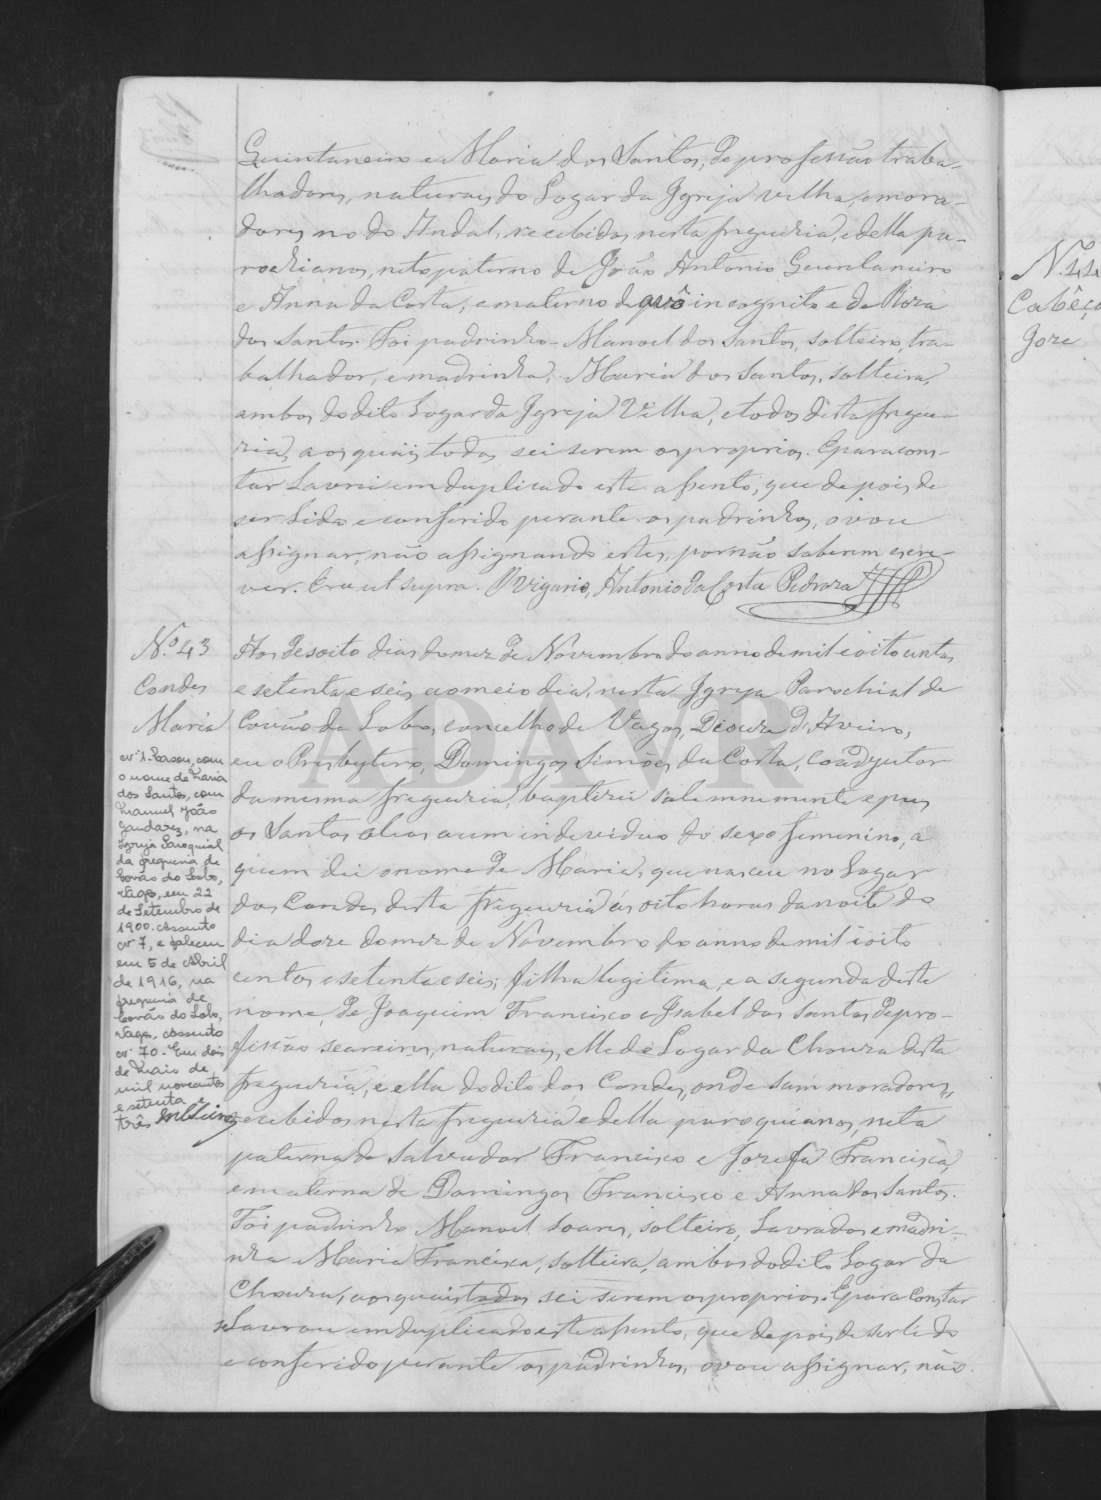 Quintaneiro e Maria dos Santos, de profissão traba-
lhadores, naturaes do Logar da Igreja velha, e mora-
dores no do Andal, recebidos nesta freguezia, e della pa-
rochianos, neto paterno de João Antonio Quintaneiro
e Anna da Costa, e materno de avô incognito e de Roza
dos Santos. Foi padrinho Manoel dos Santos, solteiro, tra-
balhador, e madrinha, Maria dos Santos, solteira,
ambos do dito Logar da Igreja Velha, e todos desta fregue-
zia, aos quais todos sei serem os proprios. E para cons-
tar Lavrei em duplicado este assento, que depois de
ser Lido e conferido perante os padrinhos, o vou
assignar, não assignando estes, por não saberem escre-
ver. Era ut supra. O Vigario, Antonio da Costa Pedroza
Nº 43
Condes
Maria
Aos desoito dias do mez de Novembro do anno de mil e oitocentos
e setenta e seis, ao meio dia, nesta Igreja Parochial de
Covão do Lobo, concelho de Vagos, Dioceze d'Aveiro,
eu o Presbytero, Domingos Simões da Costa, Coadjutor
da mesma freguezia, baptizei solemnemente e puz
os Santos oleos a um individuo do sexo femenino, a
quem dei o nome de Maria, que nasceu no Logar
dos Condes desta freguezia ás oito horas da noite do
dia doze do mez de Novembro do anno de mil e oito
centos e setenta e seis; filha legitima, e a segunda deste
nome, de Joaquim Francisco e Isabel dos Santos, de pro-
fissão seareiros, naturaes, elle do Logar da Choura desta
freguezia, e ella do dito dos Condes, onde sam moradores,
recebidos nesta freguezia e della paroquianos, neta
paterna de Salvador Francisco e Jozefa Francisca,
e materna de Domingos Francisco e Anna dos Santos.
Foi padrinho Manoel Soares, solteiro, Lavrador e madri-
nha Maria Francisca, solteira, ambos do dito Logar da
Choura, aos quais todos sei serem os proprios. E para constar
se Lavrou em duplicado este assento, que depois de ser lido
e conferido perante os padrinhos, o vou assignar, não
nº 1. Casou, com
o nome de Maria
dos Santos, com
Manuel João
Gandarez, na
Igreja Paroquial
da freguesia de
Covão do Lobo,
Vagos, em 22
de Setembro de
1900. Assento
nº 7, e faleceu
em 5 de Abril
de 1916, na
freguesia de
Covão do Lobo,
Vagos, assento
nº 70. Em dois
de Maio de
mil novecentos
e setenta e
três
Cabêço
Joze
ADAVR